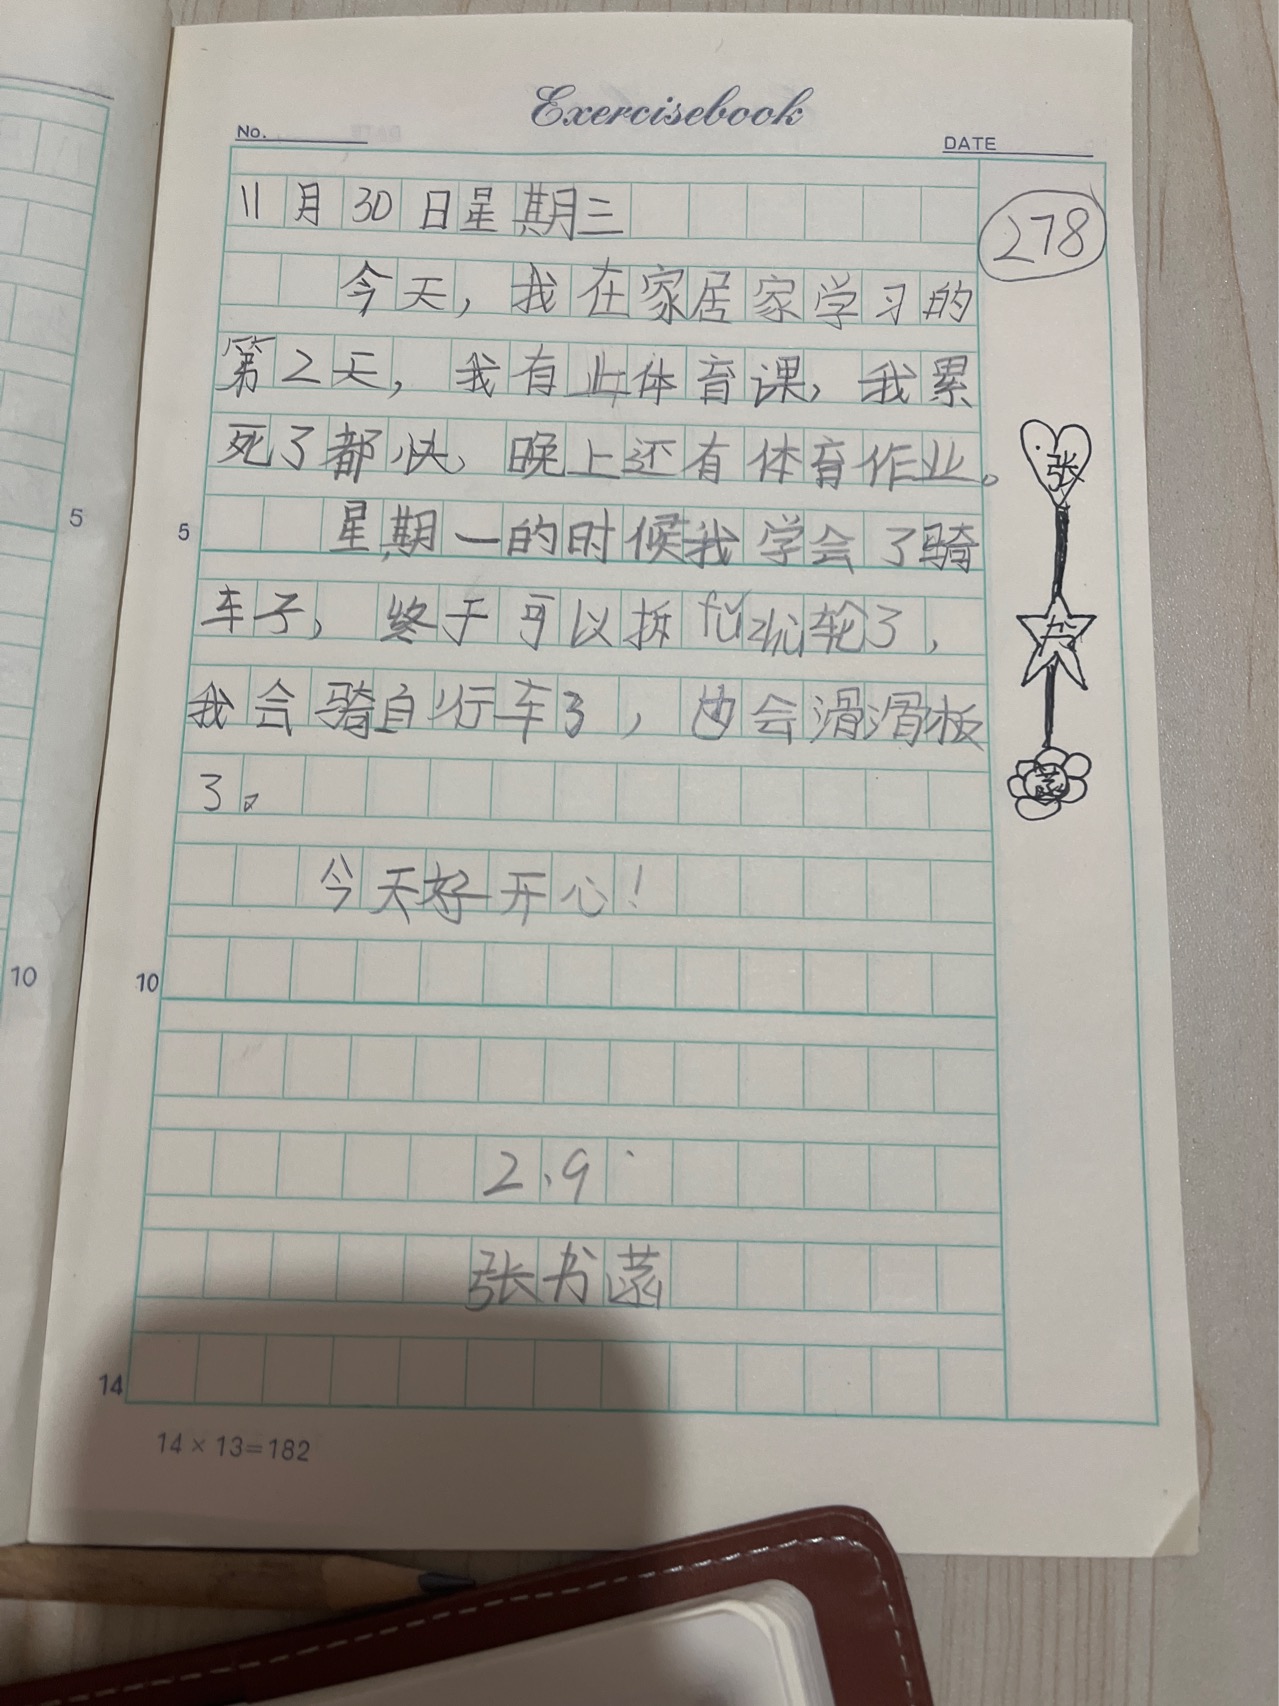 Exercisebook
No.
DATE
11月30日星期三
278
今天，我在家居家学习的
第2天，我有业体育课，我累
死了都快，晚上还有体育作业。
张
5
5
星期一的时候我学会了骑
车子，终于可以拆fǔzhù轮了，
书
我会骑自行车了，也会滑滑板
了。
菡
今天好开心！
10
10
2、9
张书菡
14
14×13=182